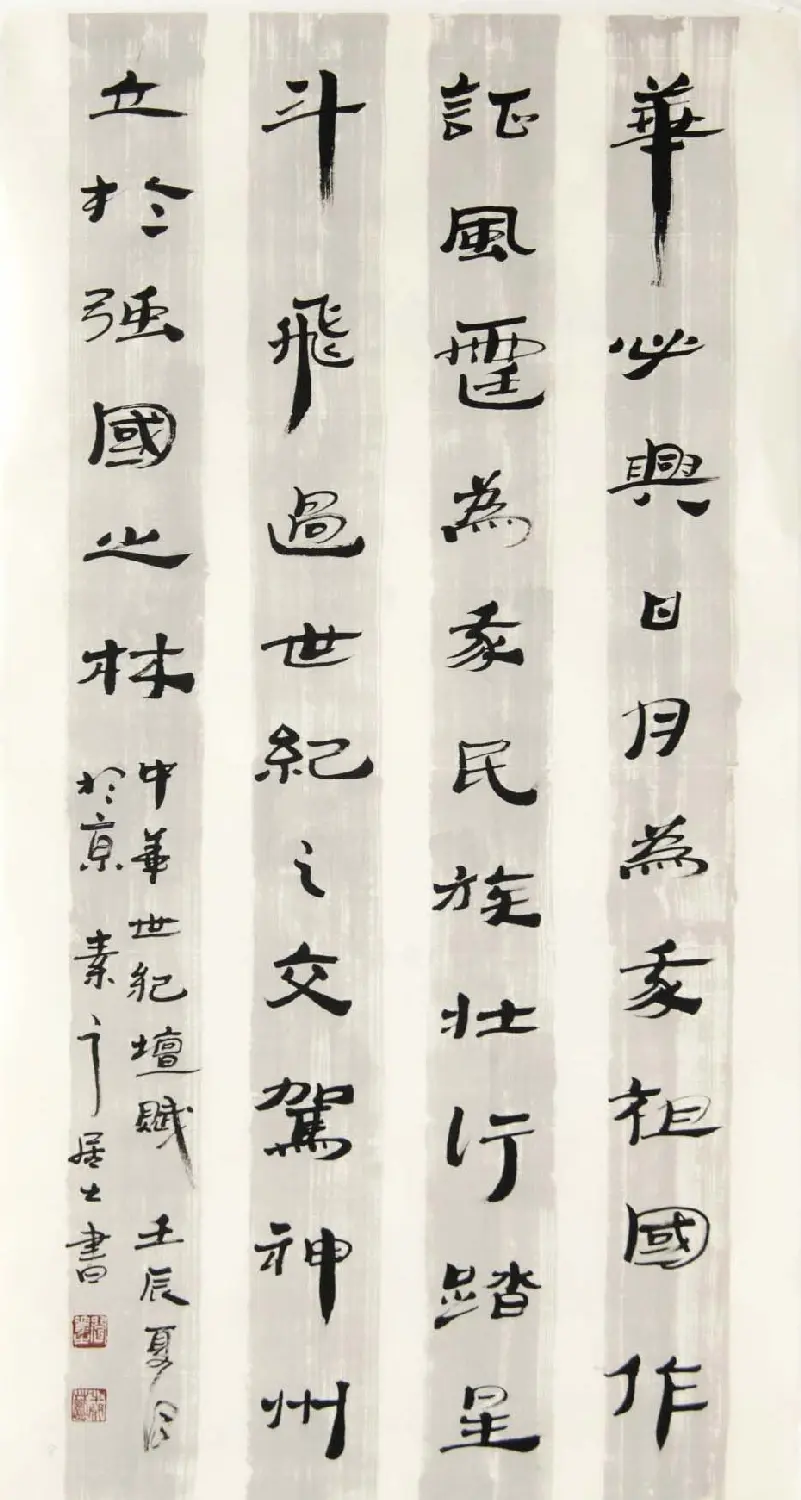 華必興日月為我祖國作
証風霆為我民族壯行踏星
斗飛過世紀之交駕神州
立於强國之林
中華世紀壇賦 壬辰夏月
於京 素行居士書